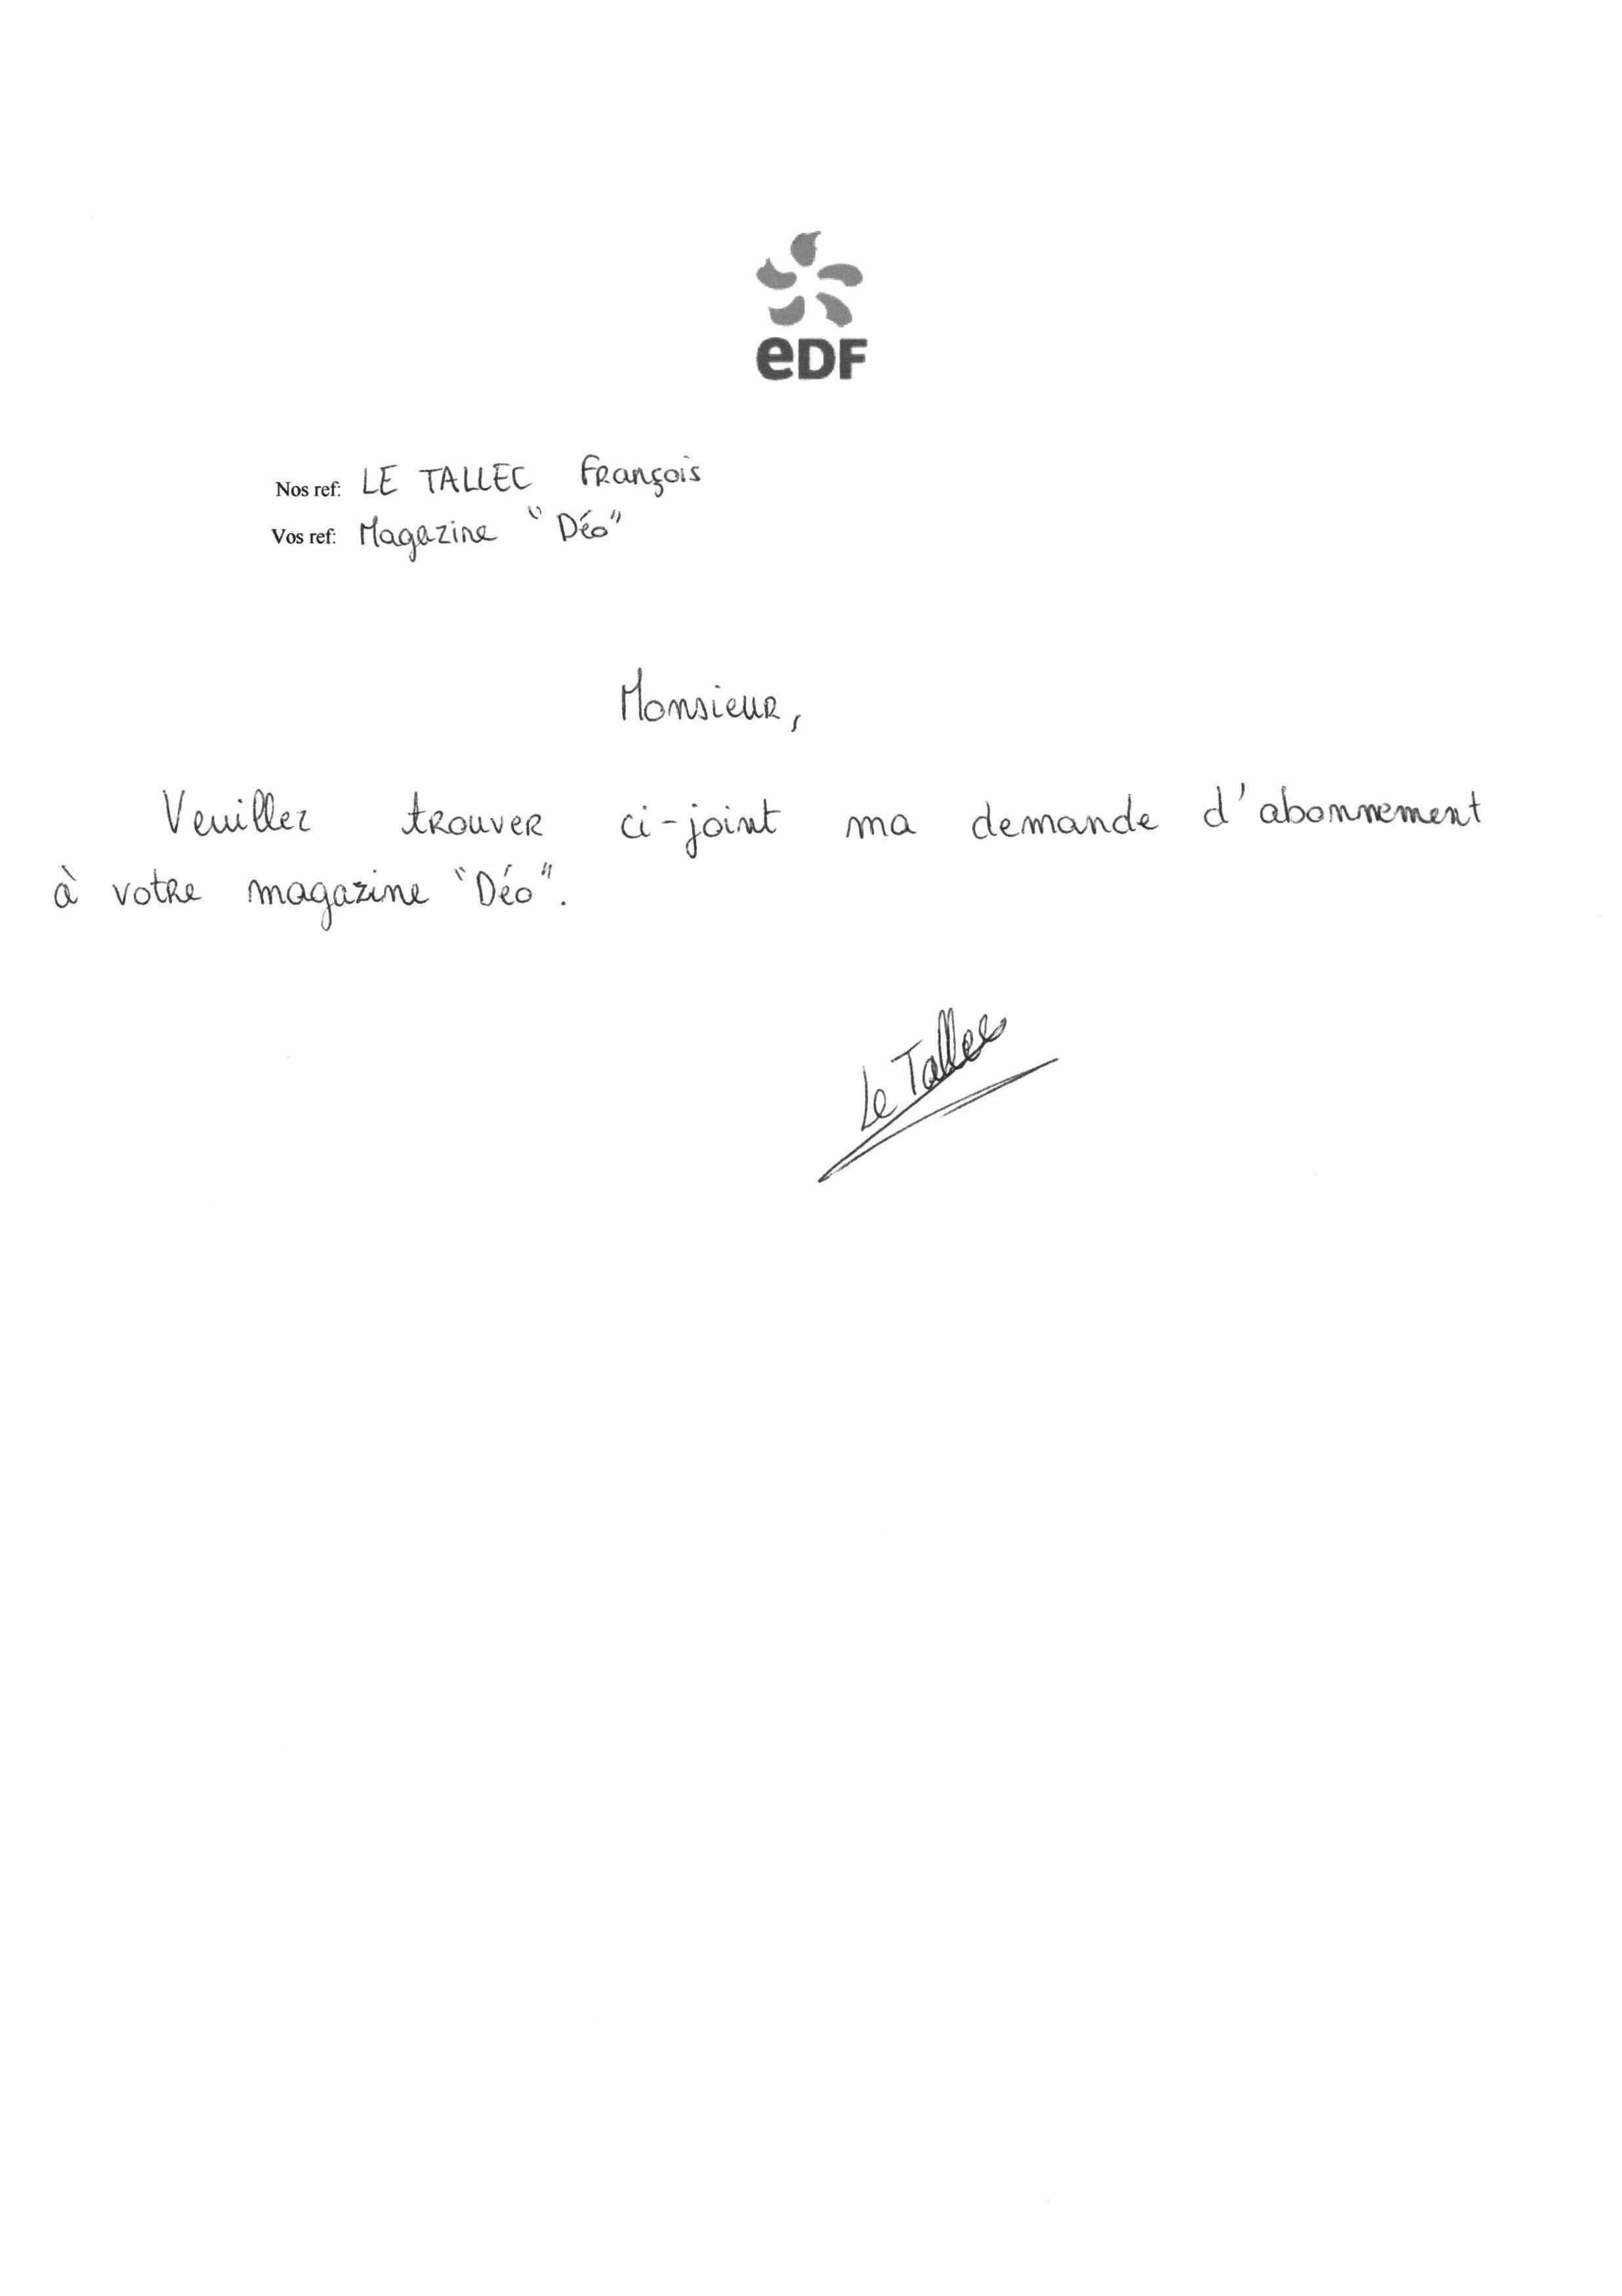 eDF
Nos ref: LE TALLEC François
Vos ref: Magazine "Déo"
Monsieur,
Veuillez trouver ci-joint ma demande d'abonnement
à votre magazine "Déo".
Le Tallec